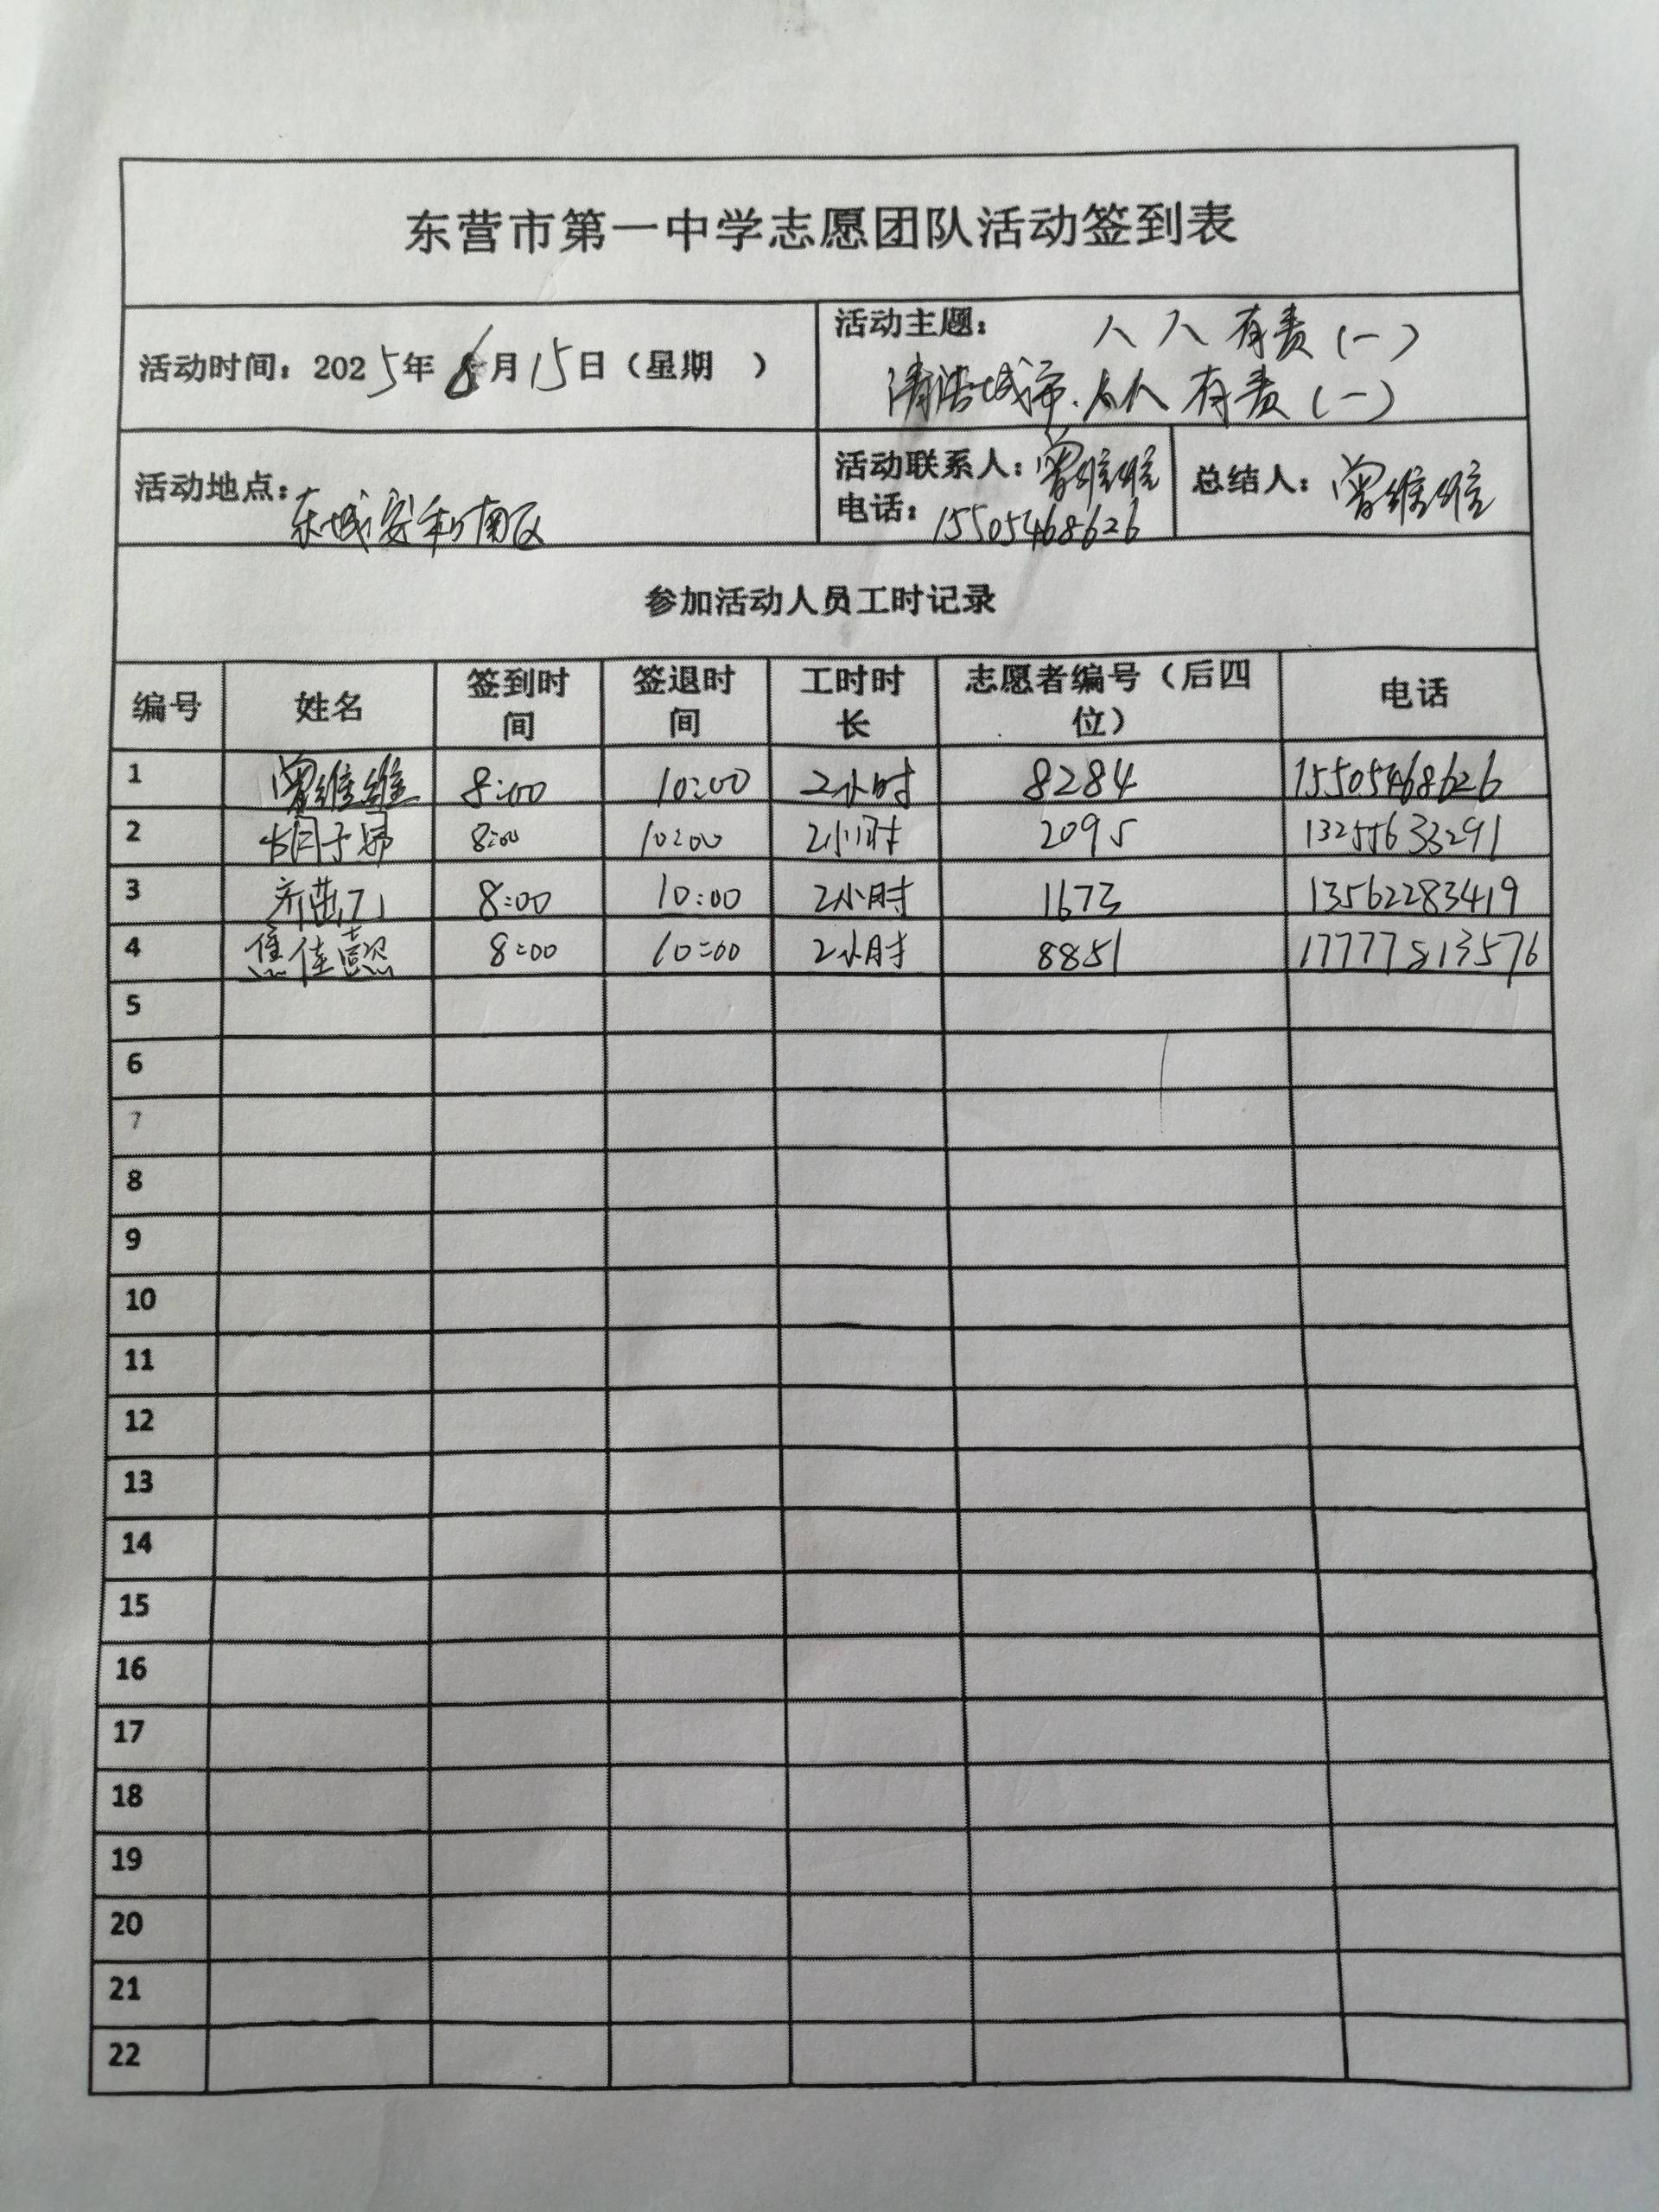 东营市第一中学志愿团队活动签到表
活动时间：2025年6月15日（星期　）
活动主题：人人有责(一)
清洁城市.人人有责(一)
活动地点：东城安和南区
活动联系人：曾维维
电话：15505468626
总结人：曾维维
参加活动人员工时记录
编号 姓名 签到时间 签退时间 工时时长 志愿者编号（后四位） 电话
1 曾维维 8:00 10:00 2小时 8284 15505468626
2 胡子 8:00 10:00 2小时 2095 13255633291
3 齐 8:00 10:00 2小时 1673 13562283419
4 焦佳懿 8:00 10:00 2小时 8851 17777813576
5
6
7
8
9
10
11
12
13
14
15
16
17
18
19
20
21
22